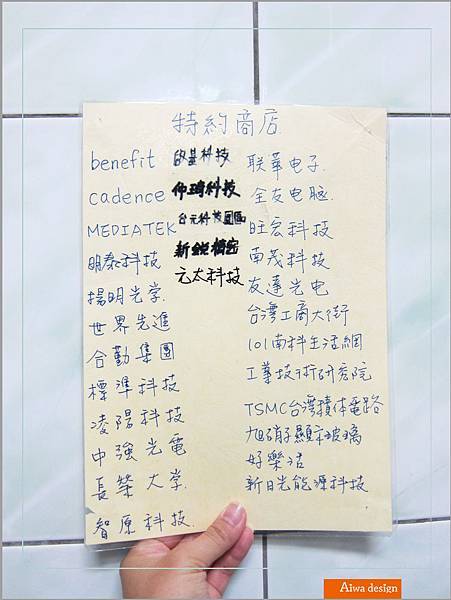 特約商店
benefit
cadence
MEDIATEK
明泰科技
揚明光学.
世界先進
合勤集團
標準科技
凌陽科技
中強光電
長榮大学.
智原科技.
矽基科技
仲琦科技
台元科技園區
新銳精密
元太科技
联華电子.
全友电脑.
旺宏科技
南茂科技
友達光电
台灣工商大街
101南科生活網
工業技术研究院
TSMC台灣積体電路
旭硝子顯示玻璃
好樂活
新日光能源科技
Aiwa design